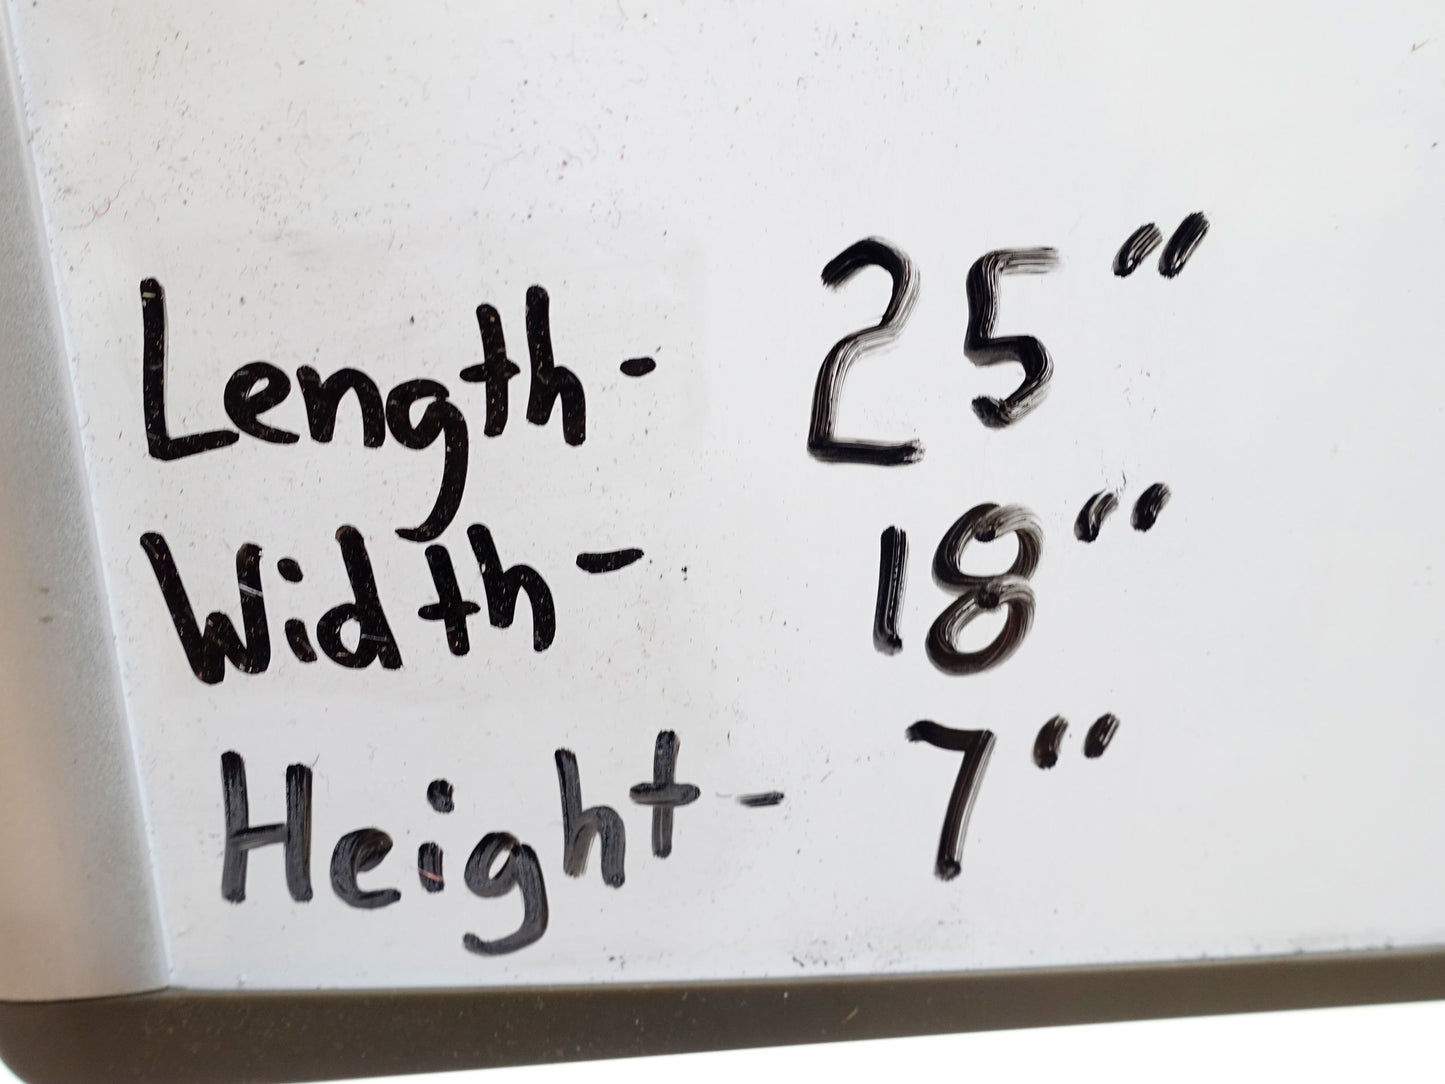 Length- 25"
Width- 18"
Height- 7"